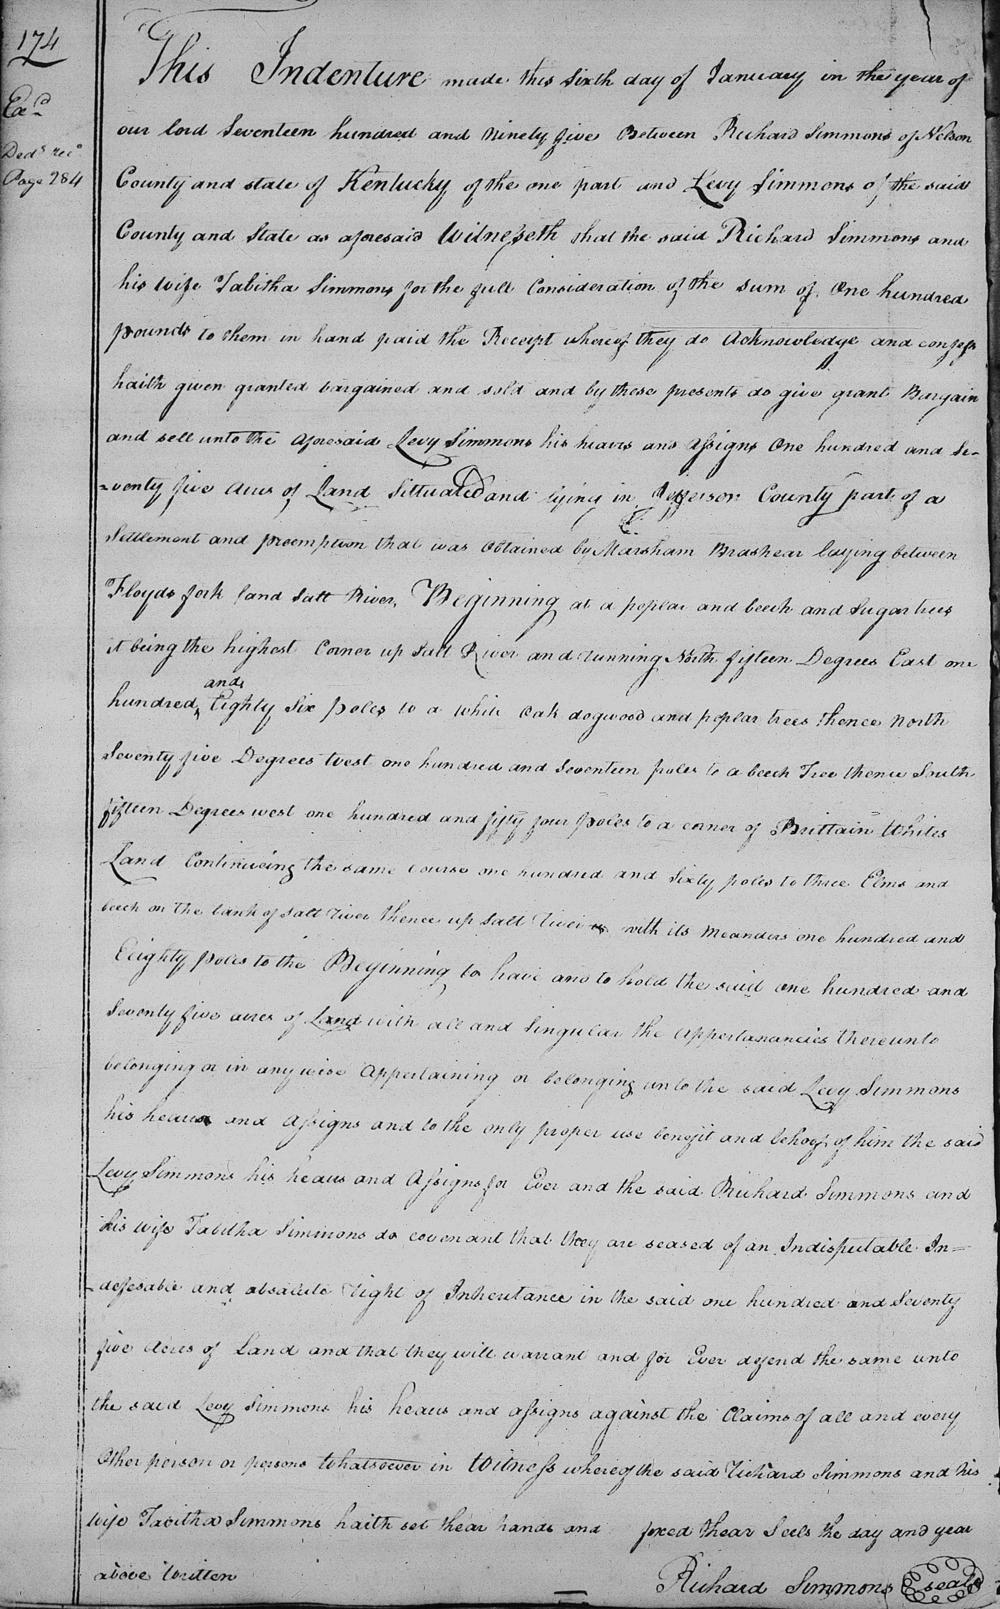 174
Ex.d
Ded.s rec.o
Page 284
This Indenture made this Sixth day of January in the year of
our lord Seventeen hundred and Ninety five Between Richard Simmons of Nelson
County and state of Kentucky of the one part and Levy Simmons of the said
County and State as aforesaid Witnesseth that the said Richard Simmons and
his wife Tabitha Simmons for the full Consideration of the sum of One hundred
pounds to them in hand paid the Receipt whereof they do Acknowledge and confess
haith given granted bargained and sold and by these presents do give grant Bargain
and sell unto the aforesaid Levy Simmons his heairs and Assigns One hundred and Se-
-venty five Acres of Land Sittuated and lying in Jefferson County part of a
Settlement and preemption that was Obtained by Marsham Brashear laying between
Floyds fork land Salt River, Beginning at a poplar and beech and Sugar trees
it being the highest Corner up Salt River and running North fifteen Degrees East one
and
hundred Eighty Six poles to a White Oak dogwood and poplar trees thence North
Seventy five Degrees West one hundred and Seventeen poles to a beech Tree thence South
fifteen Degrees west one hundred and fifty four poles to a corner of Brittain Whites
Land Continueing the same course one hundred and Sixty poles to three Elms and
beech on the bank of Salt River thence up Salt River with its Meanders one hundred and
Eeighty poles to the Beginning to have and to hold the said one hundred and
Seventy five acres of Land with all and Singular the Appertanancies thereunto
belonging or in any wise Appertaining or belonging unto the said Levy Simmons
his heairs and Assigns and to the only proper use benefit and behoof of him the said
Levy Simmons his heairs and Assigns for Ever and the said Richard Simmons and
his wife Tabitha Simmons do covenant that they are seased of an Indisputable In=
-defesable and absalute right of Inheritance in the said one hundred and Seventy
five Acres of Land and that they will warrant and for Ever defend the same unto
the said Levy Simmons his heairs and assigns against the Claims of all and every
Other person or persons Whatsoever in Witness whereof the said Richard Simmons and his
wife Tabitha Simmons haith set thear hands and fixed thear Seels the day and year
above Written
Richard Simmons seal